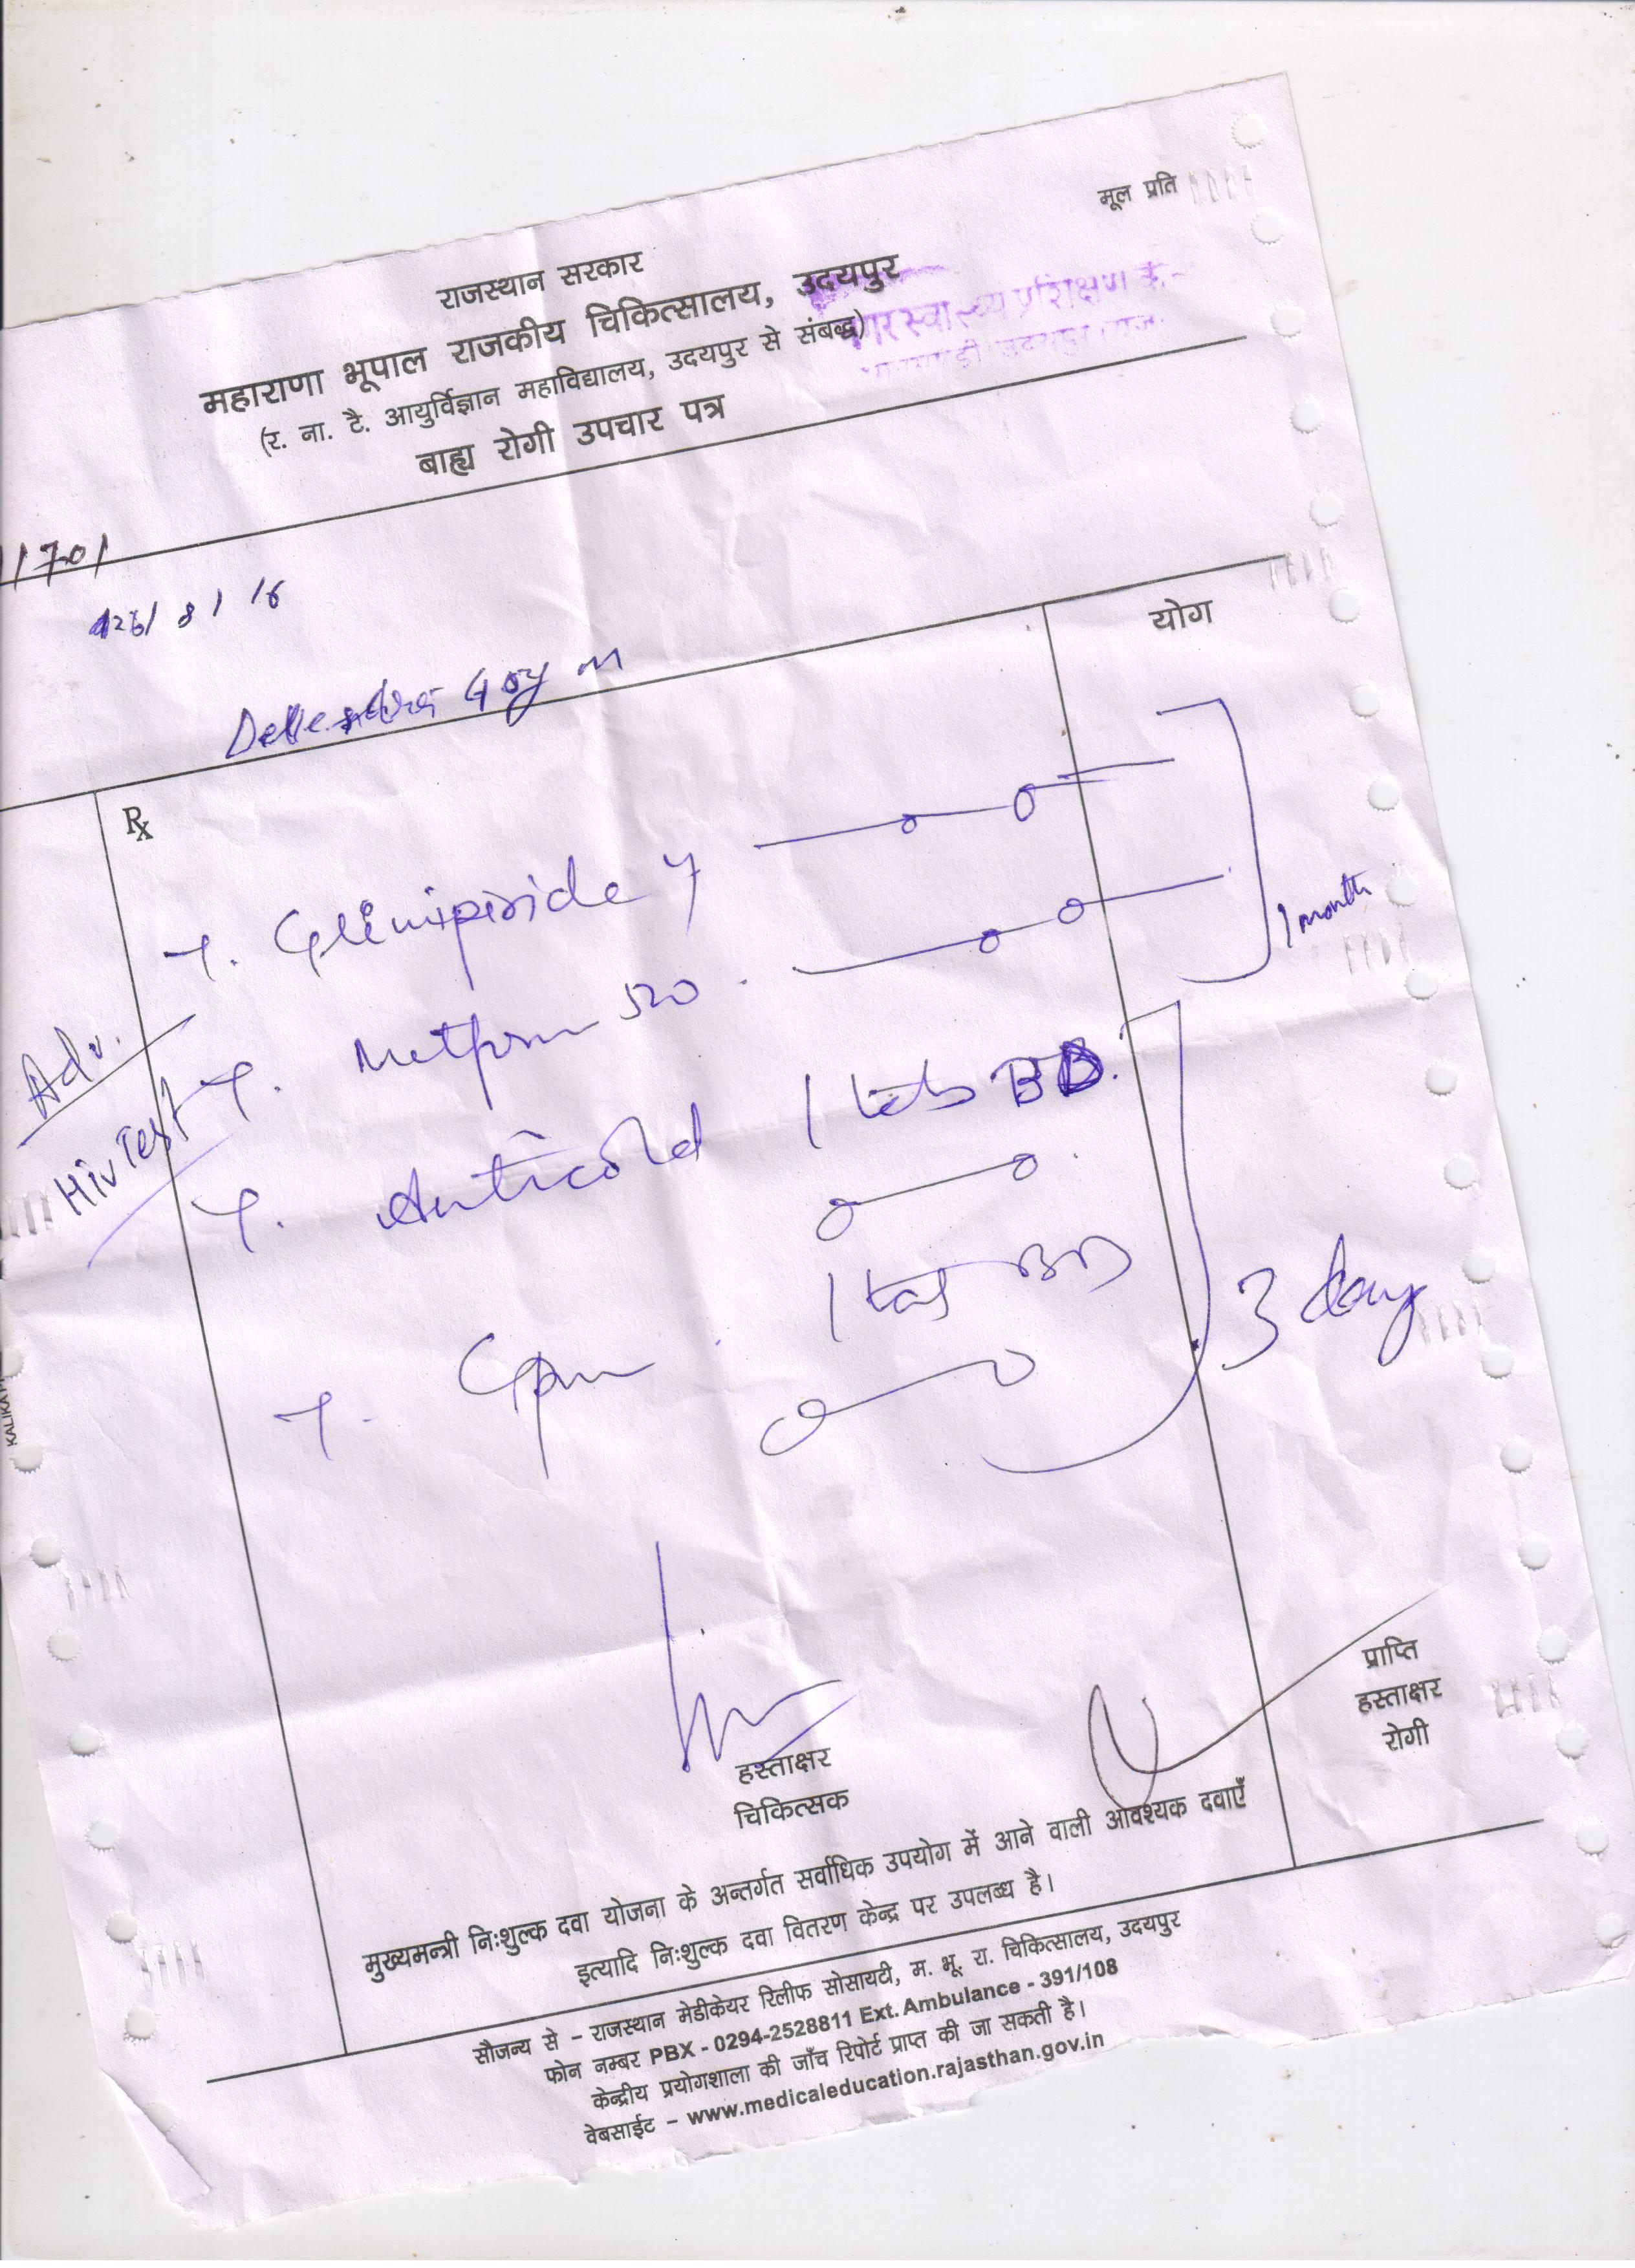 मूल प्रति
राजस्थान सरकार
महाराणा भूपाल राजकीय चिकित्सालय, उदयपुर
(र. ना. टै. आयुर्विज्ञान महाविद्यालय, उदयपुर से संबद्ध)
बाह्य रोगी उपचार पत्र
स्वास्थ्य प्रशिक्षण
उदयपुर
1701
26/8/16
योग
Rx
T. Glimiperide
T. Metform 500
1 month
Adv.
Hiv Test
T. Anticold 1 tab BD
T. Cpm 1 tab BD
3 day
हस्ताक्षर
चिकित्सक
प्राप्ति
हस्ताक्षर
रोगी
मुख्यमन्त्री निःशुल्क दवा योजना के अन्तर्गत सर्वाधिक उपयोग में आने वाली आवश्यक दवाएँ
इत्यादि निःशुल्क दवा वितरण केन्द्र पर उपलब्ध है।
सौजन्य से – राजस्थान मेडीकेयर रिलीफ सोसायटी, म. भू. रा. चिकित्सालय, उदयपुर
फोन नम्बर PBX - 0294-2528811 Ext. Ambulance - 391/108
केन्द्रीय प्रयोगशाला की जाँच रिपोर्ट प्राप्त की जा सकती है।
वेबसाईट – www.medicaleducation.rajasthan.gov.in